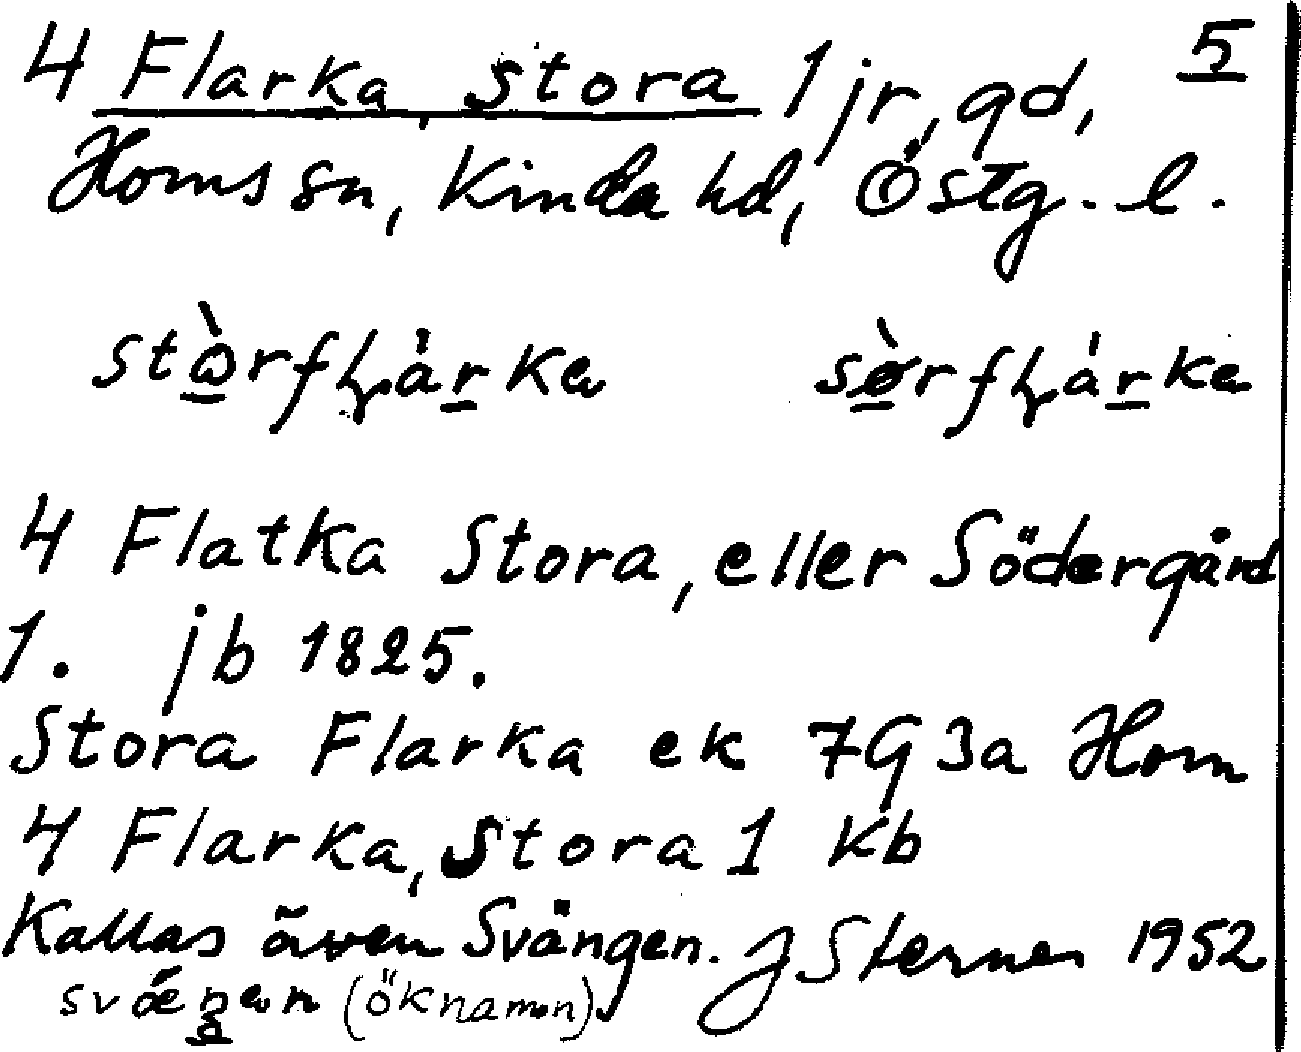 4 Flarka, Stora 1 jr, gd, 5
Horns sn, Kinda hd, Östg. l.
4 Flatka Stora, eller Södergård
1. jb 1825.
Stora Flarka ek 7G3a Horn
4 Flarka, Stora 1 kb
Kallas även Svängen. J Sterner 1952
(öknamn)